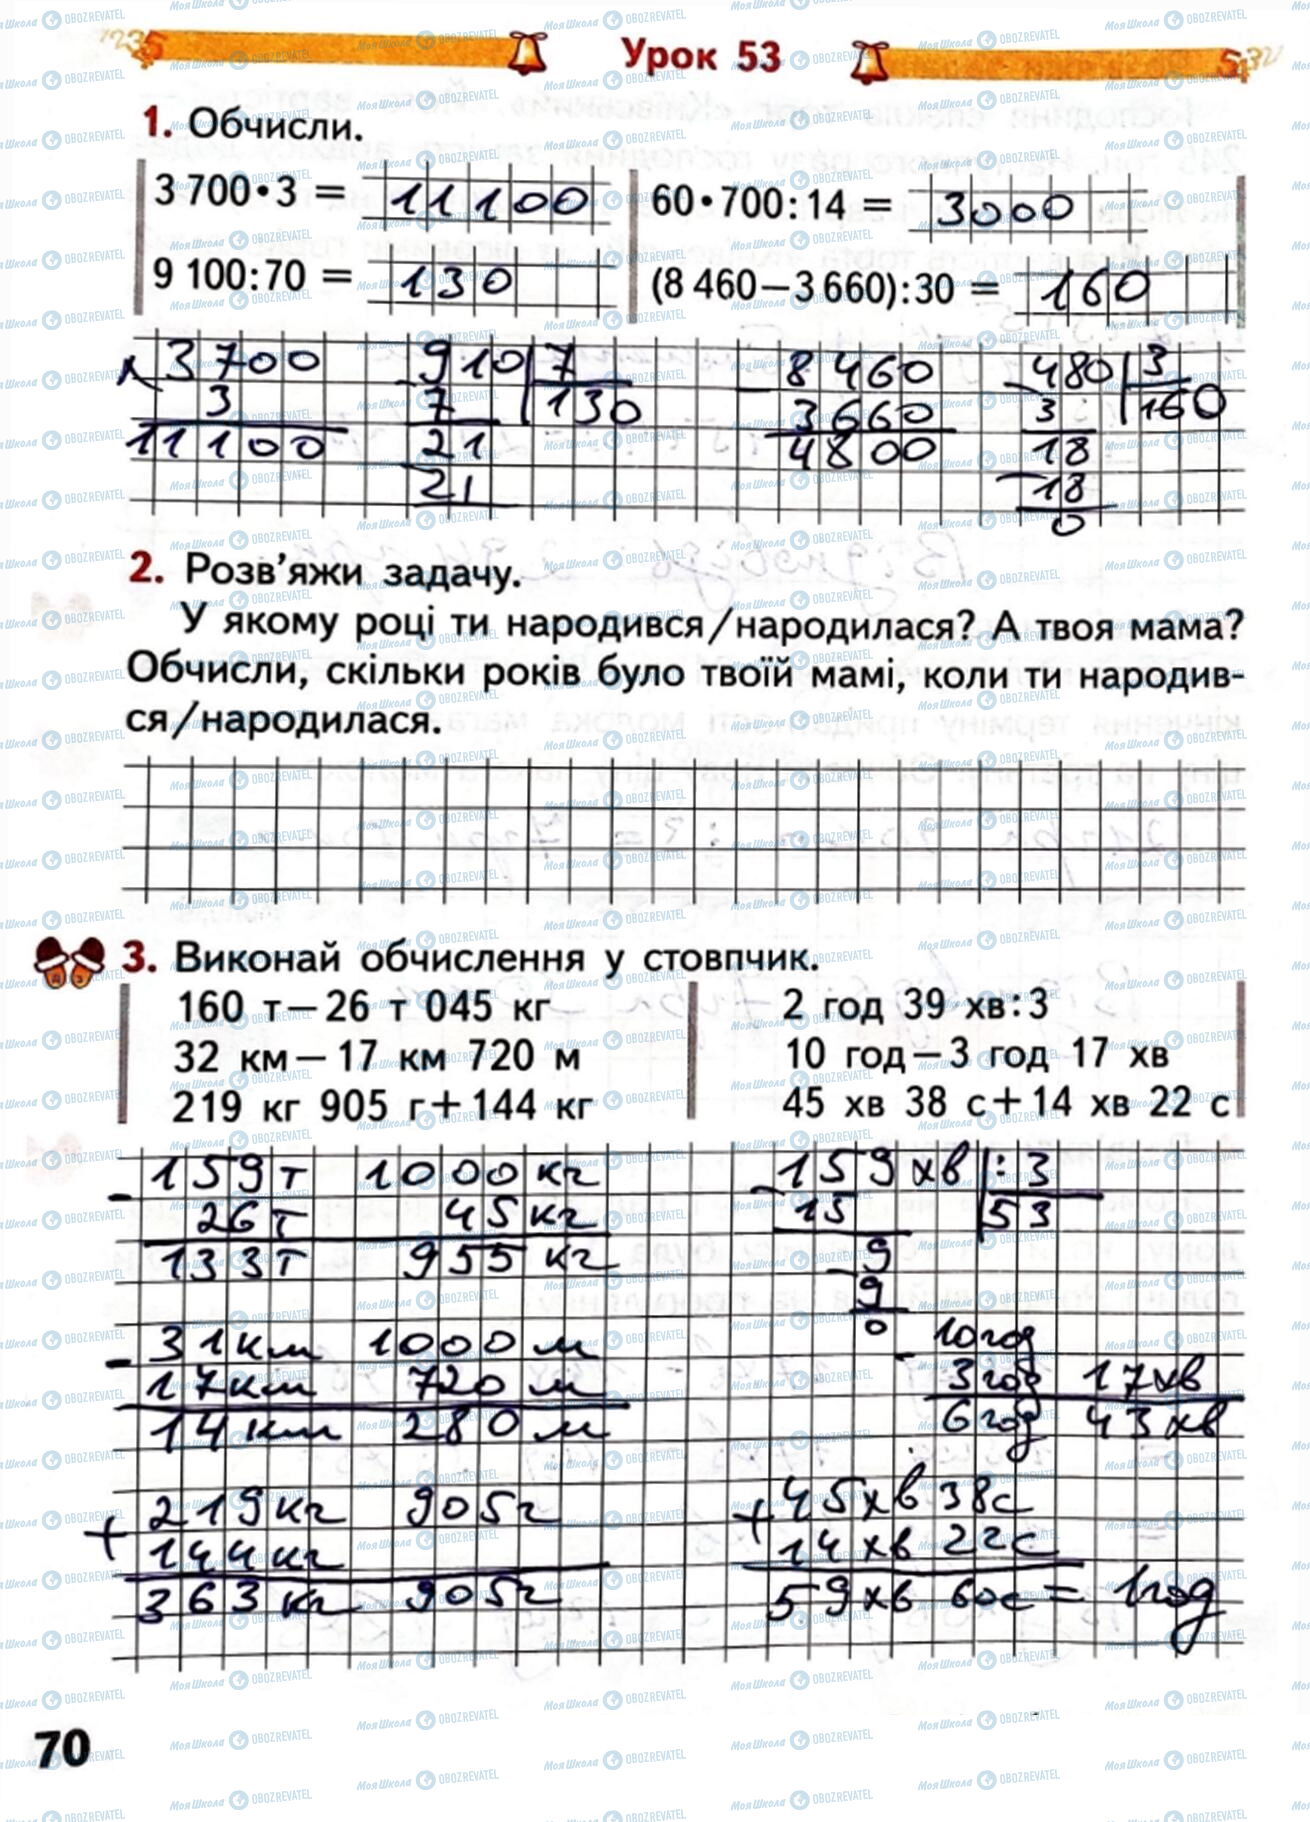 Урок 53
1. Обчисли.
3 700•3 = 11100
60•700:14 = 3000
9 100:70 = 130
(8 460–3 660):30 = 160
× 3700 – 910 | 7 – 8460 – 480 | 3
3 7 | 130 3660 3 | 160
11100 21 4800 18
21 – 18
0
2. Розв'яжи задачу.
У якому році ти народився/народилася? А твоя мама?
Обчисли, скільки років було твоїй мамі, коли ти народив-
ся/народилася.
3. Виконай обчислення у стовпчик.
160 т–26 т 045 кг
32 км–17 км 720 м
219 кг 905 г+144 кг
2 год 39 хв:3
10 год–3 год 17 хв
45 хв 38 с+14 хв 22 с
– 159т 1000 кг
26т 45 кг
133т 955 кг
– 31км 1000 м
17км 720 м
14км 280 м
+ 219кг 905г
144кг
363кг 905г
– 159 хв | : 3
15 | 53
– 9
9
0
– 10год
3год 17хв
6год 43хв
+ 45хв 38с
14хв 22с
59хв 60с = 1год
70
МояШкола OBOZREVATEL